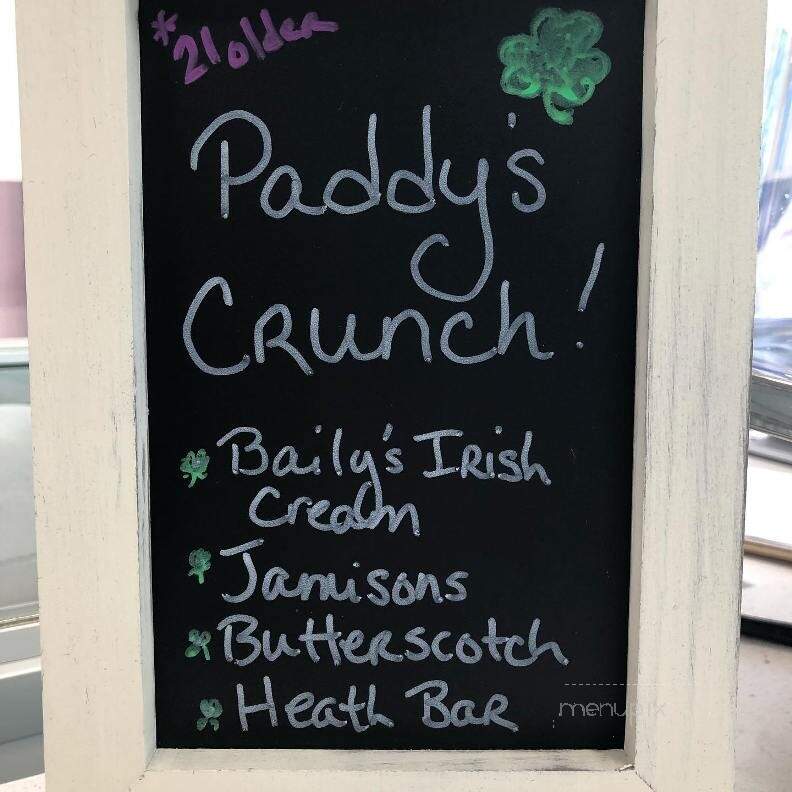 *21 older
Paddy's
Crunch!
Baily's Irish
Cream
Jamisons
Butterscotch
Heath Bar
menupix